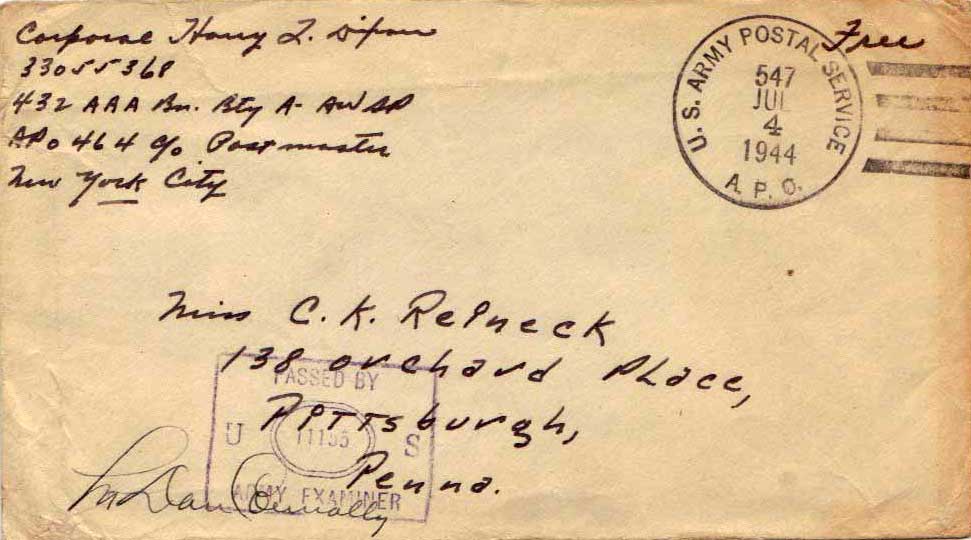 Corporal Harry L. Dixon
33055368
432 AAA Bn. Bty A- AW SP
APO 464 c/o Postmaster
New York City
Free
U. S. ARMY POSTAL SERVICE
547
JUL
4
1944
A. P. O.
Miss C. K. Reineck
138 Orchard Place,
Pittsburgh,
Penna.
PASSED BY
U S
ARMY EXAMINER
Dan Connally